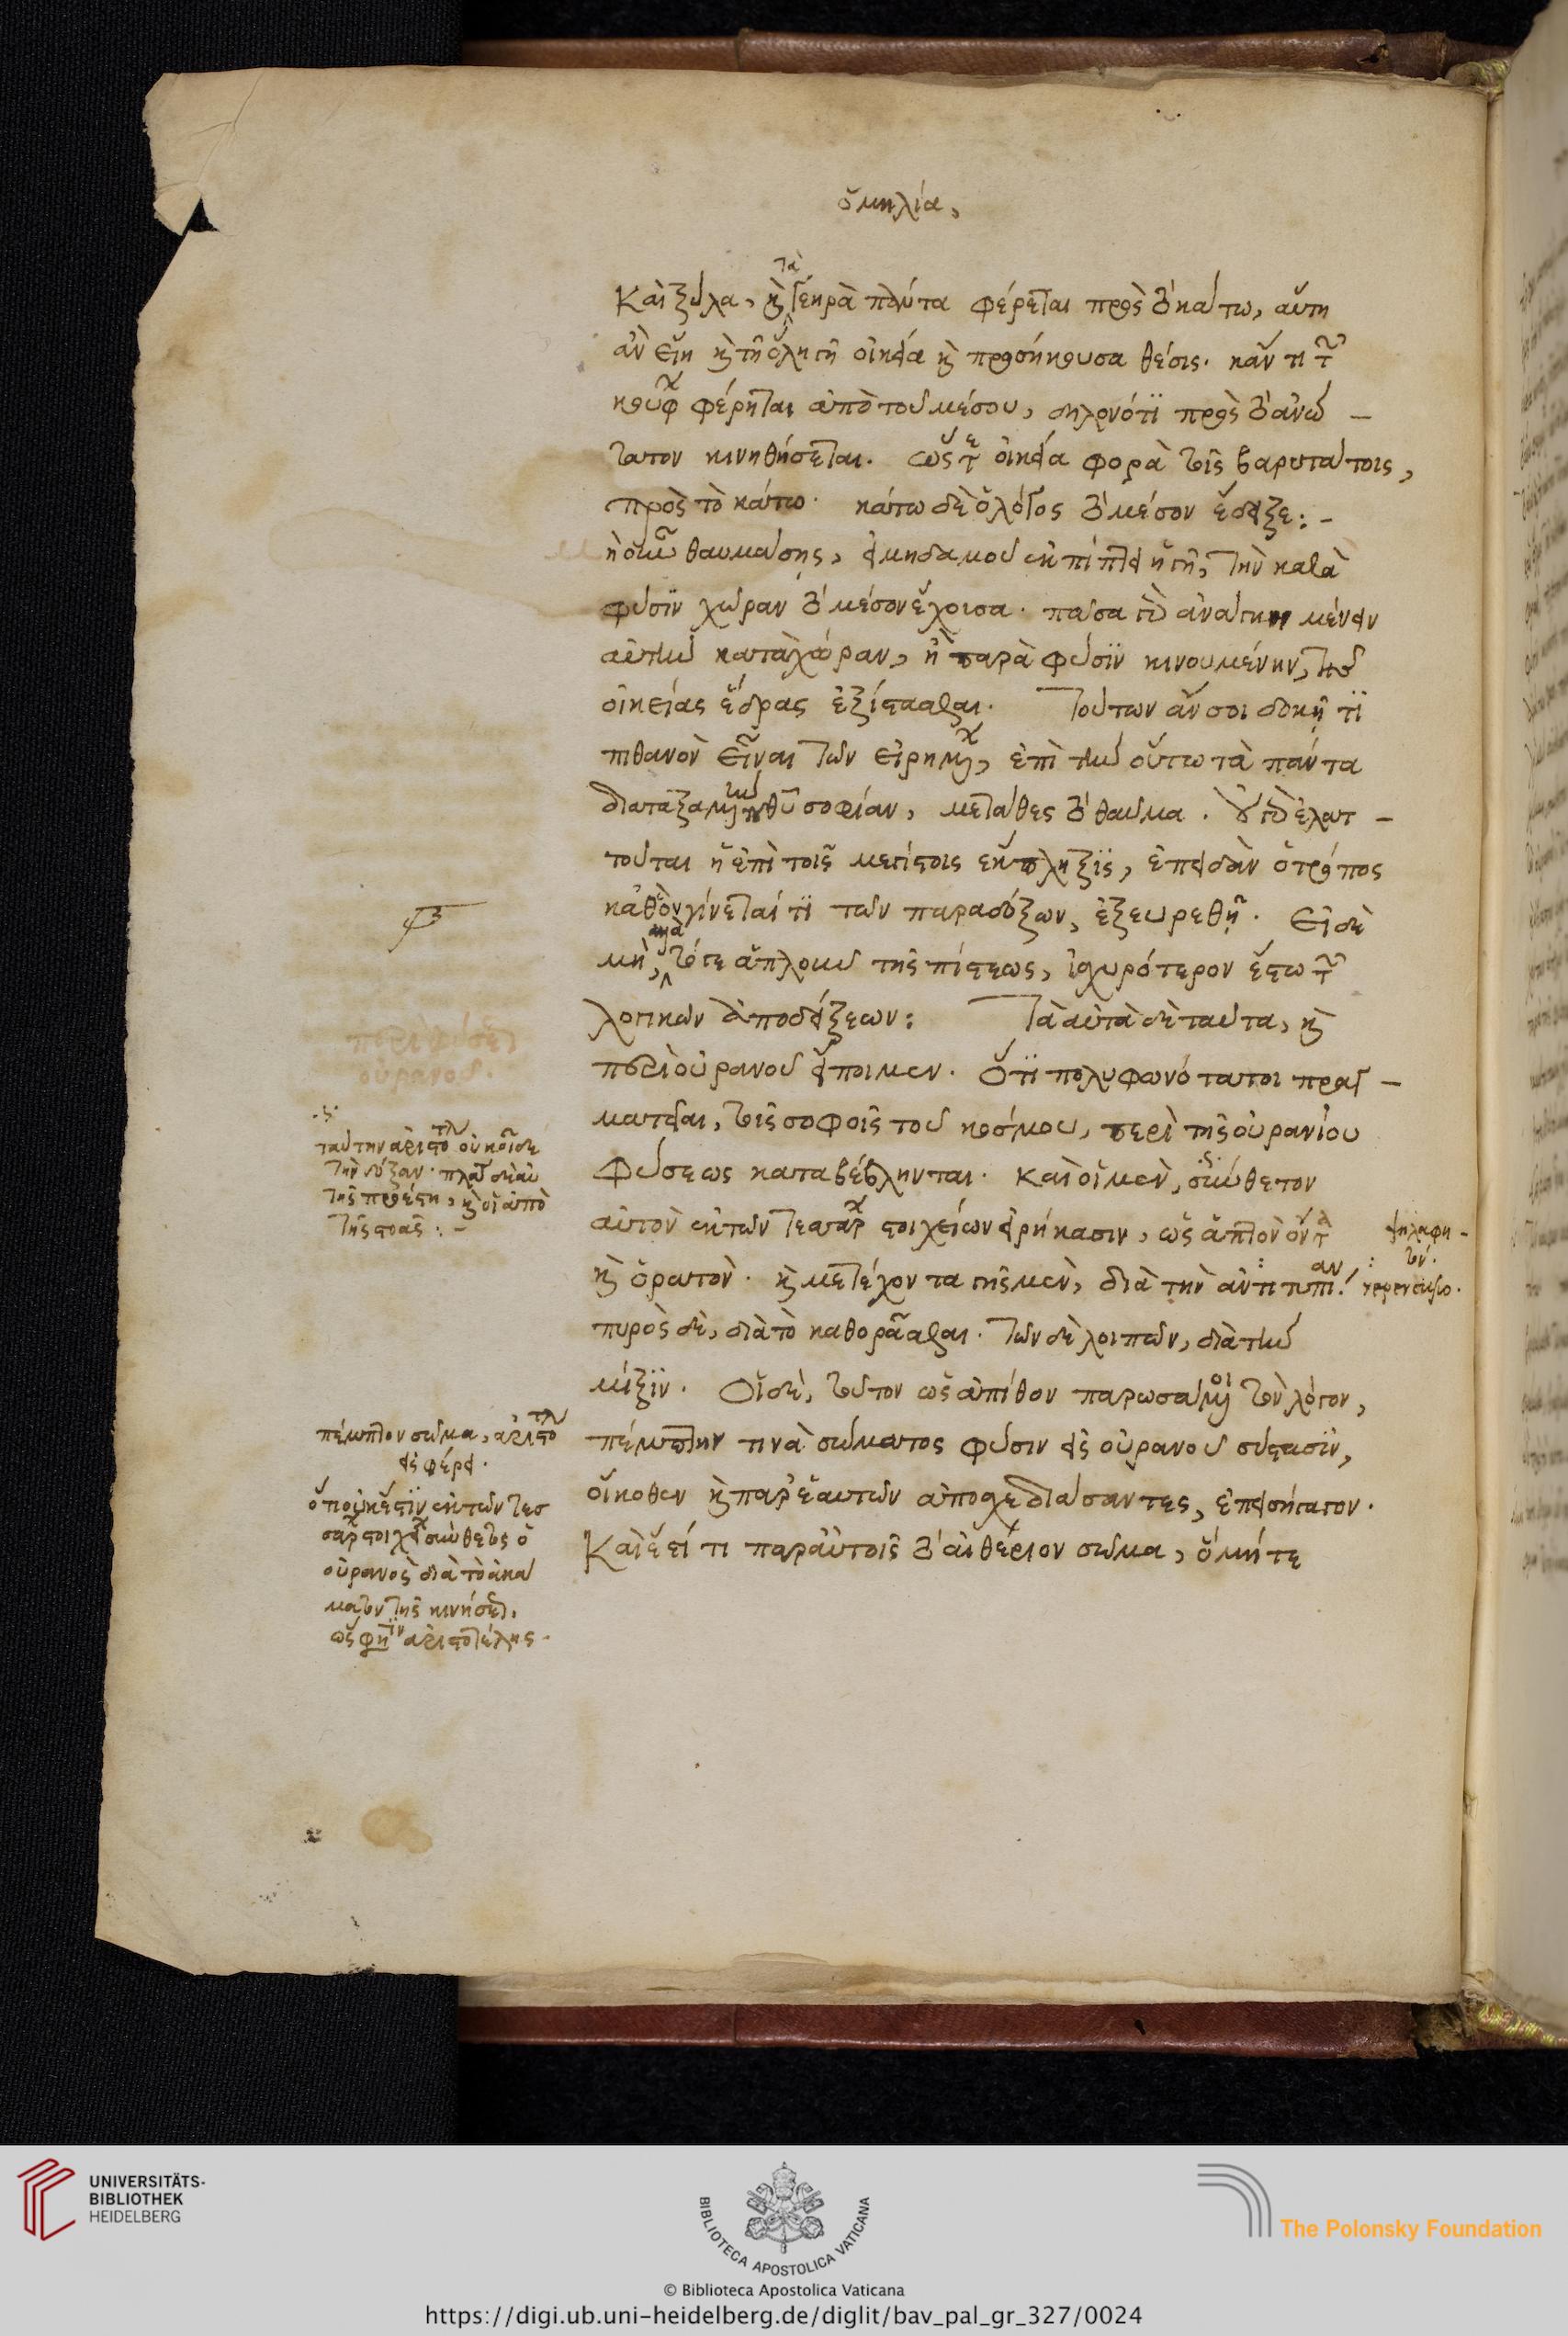 ὁμηλία,
Καὶ ξύλα, καὶ τὰ γεηρὰ πάντα φέρεται πρὸς τὸ κάτω, αὕτη
ἂν εἴη καὶ τῇ ὅλῃ γῇ οἰκεία καὶ προσήκουσα θέσις· κἄν τι τῶν
κούφων φέρηται ἀπὸ τοῦ μέσου, δηλονότι πρὸς τὸ ἀνώ-
τατον κινηθήσεται. ὥστε οἰκεία φορὰ τοῖς βαρυτάτοις,
πρὸς τὸ κάτω· κάτω δὲ ὁ λόγος τὸ μέσον ἔδειξε:-
μὴ οὖν θαυμάσῃς, εἰ μηδαμοῦ ἐκπίπτει ἡ γῆ, τὴν κατὰ
φύσιν χώραν τὸ μέσον ἔχουσα· πᾶσα γὰρ ἀνάγκη μένειν
αὐτὴν κατὰ χώραν, ἢ παρὰ φύσιν κινουμένην, τῆς
οἰκείας ἕδρας ἐξίστασθαι. Τούτων ἄν σοι δοκῇ τι
πιθανὸν εἶναι τῶν εἰρημένων, ἐπὶ τὴν οὕτω τὰ πάντα
διαταξαμένην τοῦ θεοῦ σοφίαν, μετάθες τὸ θαῦμα. Οὐ γὰρ ἐλατ-
τοῦται ἡ ἐπὶ τοῖς μεγίστοις ἔκπληξις, ἐπειδὰν ὁ τρόπος
καθ' ὃν γίνεταί τι τῶν παραδόξων, ἐξευρεθῇ. Εἰ δὲ
μὴ, ἀλλὰ τό γε ἁπλοῦν τῆς πίστεως, ἰσχυρότερον ἔστω τῶν
λογικῶν ἀποδείξεων: Τὰ αὐτὰ δὲ ταῦτα, καὶ
περὶ οὐρανοῦ εἴποιμεν. Ὅτι πολυφωνόταται πραγ-
ματεῖαι, τοῖς σοφοῖς τοῦ κόσμου, περὶ τῆς οὐρανίου
φύσεως καταβέβληνται. Καὶ οἱ μὲν, σύνθετον
αὐτὸν ἐκ τῶν τεσσάρων στοιχείων εἰρήκασιν, ὡς ἁπτὸν ὄντα
καὶ ὁρατόν. καὶ μετέχοντα γῆς μὲν, διὰ τὴν ἀντιτυπίαν.
πυρὸς δὲ, διὰ τὸ καθορᾶσθαι. τῶν δὲ λοιπῶν, διὰ τὴν
μίξιν. Οἱ δὲ, τοῦτον ὡς ἀπίθανον παρωσάμενοι τὸν λόγον,
πέμπτην τινὰ σώματος φύσιν εἰς οὐρανοῦ σύστασιν,
οἴκοθεν καὶ παρ' ἑαυτῶν ἀποσχεδιάσαντες, ἐπεισήγαγον.
Καὶ ἔστί τι παρ' αὐτοῖς τὸ αἰθέριον σῶμα, ὃ μήτε
περὶ φύσεως
οὐρανοῦ.
ταύτην ἀριστοτέλης οὐκ οἶδε
τὴν δόξαν. πλάτων δὲ αὐ
τῆς προέστη, καὶ οἱ ἀπὸ
τῆς στοᾶς:-
ψηλαφη-
τόν.
πέμπτον σῶμα, ἀριστοτέλης
εἰσφέρει.
ὅτι οὐκ ἔστιν ἐκ τῶν τεσ
σάρων στοιχείων σύνθετος ὁ
οὐρανὸς διὰ τὸ ἀκά
ματον τῆς κινήσεως,
ὥς φησιν ἀριστοτέλης.
UNIVERSITÄTS-
BIBLIOTHEK
HEIDELBERG
BIBLIOTECA APOSTOLICA VATICANA
The Polonsky Foundation
© Biblioteca Apostolica Vaticana
https://digi.ub.uni-heidelberg.de/diglit/bav_pal_gr_327/0024